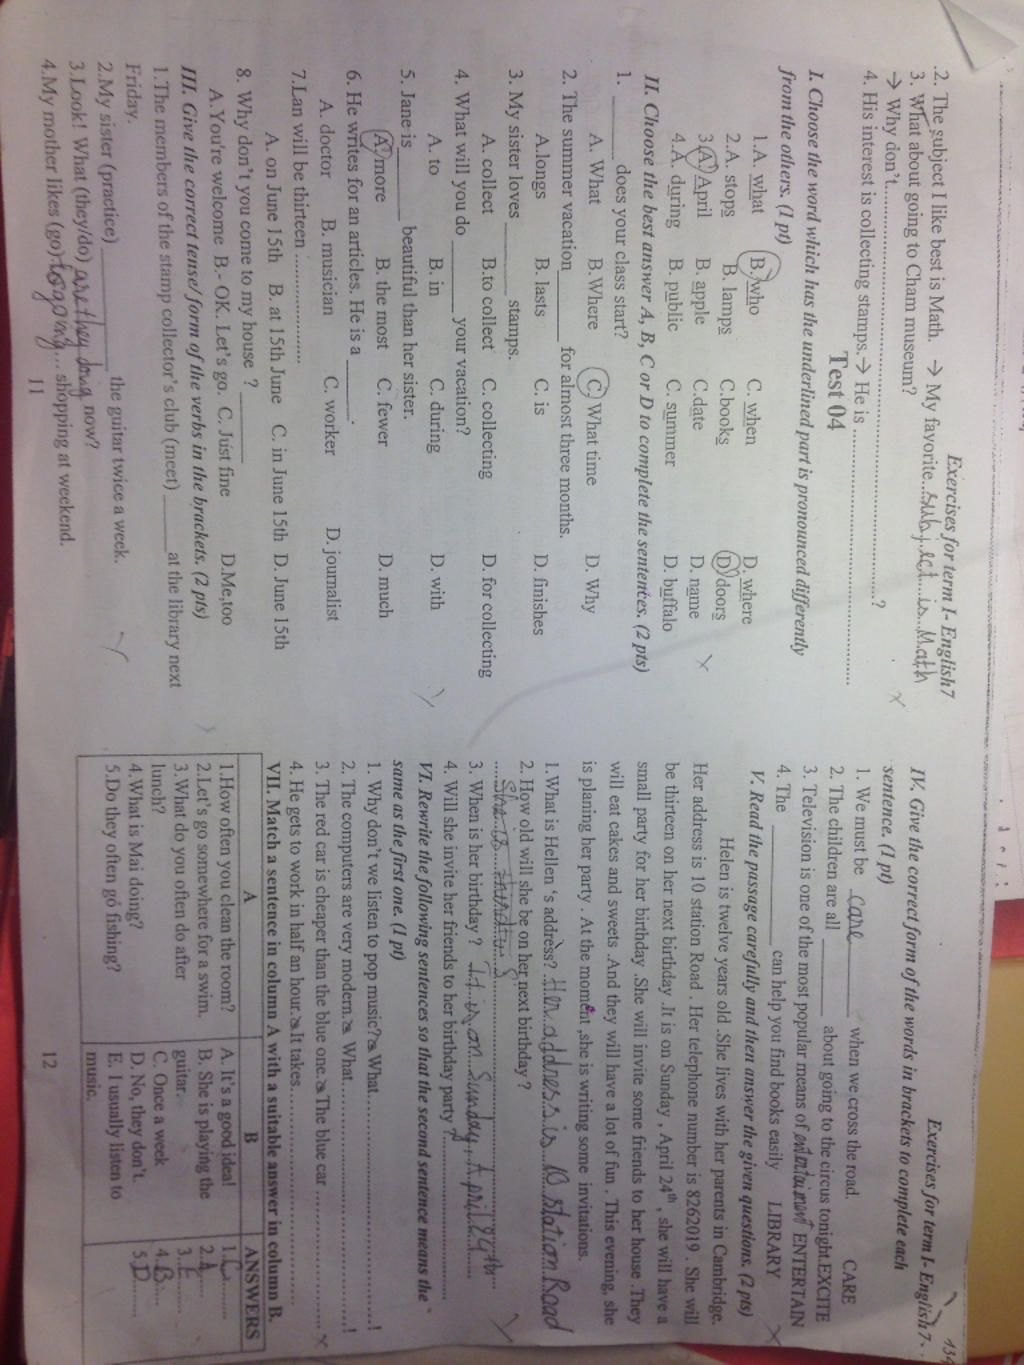 Exercises for term I- English7
.2. The subject I like best is Math. → My favorite ...subject...is..Math
3. What about going to Cham museum?
→ Why don't....................................................................................?
4. His interest is collecting stamps.→ He is ..................................................
Test 04
I. Choose the word which has the underlined part is pronounced differently
from the others. (1 pt)
1.A. what B. who C. when D. where
2.A. stops B. lamps C.books D. doors
3.A. April B. apple C.date D. name
4.A. during B. public C. summer D. buffalo
II. Choose the best answer A, B, C or D to complete the sentences. (2 pts)
1. ______ does your class start?
A. What B. Where C. What time D. Why
2. The summer vacation______ for almost three months.
A.longs B. lasts C. is D. finishes
3. My sister loves ______ stamps.
A. collect B.to collect C. collecting D. for collecting
4. What will you do ______ your vacation?
A. to B. in C. during D. with
5. Jane is______ beautiful than her sister.
A. more B. the most C. fewer D. much
6. He writes for an articles. He is a ______.
A. doctor B. musician C. worker D. journalist
7.Lan will be thirteen ................
A. on June 15th B. at 15th June C. in June 15th D. June 15th
8. Why don't you come to my house ? ______
A.You're welcome B.- OK. Let's go. C. Just fine D.Me,too
III. Give the correct tense/ form of the verbs in the brackets. (2 pts)
1.The members of the stamp collector's club (meet) ______at the library next
Friday.
2.My sister (practice) ____________ the guitar twice a week.
3.Look! What (they/do) are they doing now?
4.My mother likes (go) to going... shopping at weekend.
11
Exercises for term I- English7
IV. Give the correct form of the words in brackets to complete each
sentence. (1 pt)
1. We must be care when we cross the road. CARE
2. The children are all ________ about going to the circus tonight.EXCITE
3. Television is one of the most popular means of ENTERTAIN
4. The ____________ can help you find books easily LIBRARY
V. Read the passage carefully and then answer the given questions. (2 pts)
Helen is twelve years old .She lives with her parents in Cambridge.
Her address is 10 station Road . Her telephone number is 8262019 . She will
be thirteen on her next birthday .It is on Sunday , April 24th , she will have a
small party for her birthday .She will invite some friends to her house .They
will eat cakes and sweets .And they will have a lot of fun . This evening, she
is planing her party . At the moment ,she is writing some invitations.
1.What is Hellen's address? Her address is 10 station Road
2. How old will she be on her next birthday ?
She is
3. When is her birthday ? It is on Sunday, April 24th
4. Will she invite her friends to her birthday party ?................................
VI. Rewrite the following sentences so that the second sentence means the
same as the first one. (1 pt)
1. Why don't we listen to pop music? What..................................................!
2. The computers are very modern. What....................................................!
3. The red car is cheaper than the blue one. The blue car ............................
4. He gets to work in half an hour. It takes..................................................
VII. Match a sentence in column A with a suitable answer in column B.
A B ANSWERS
1.How often you clean the room? A. It's a good idea! 1.C
2.Let's go somewhere for a swim. B. She is playing the 2.A
3.What do you often do after guitar. 3.E
lunch? C. Once a week 4.B
4.What is Mai doing? D. No, they don't. 5.D
5.Do they often go fishing? E. I usually listen to
music.
12